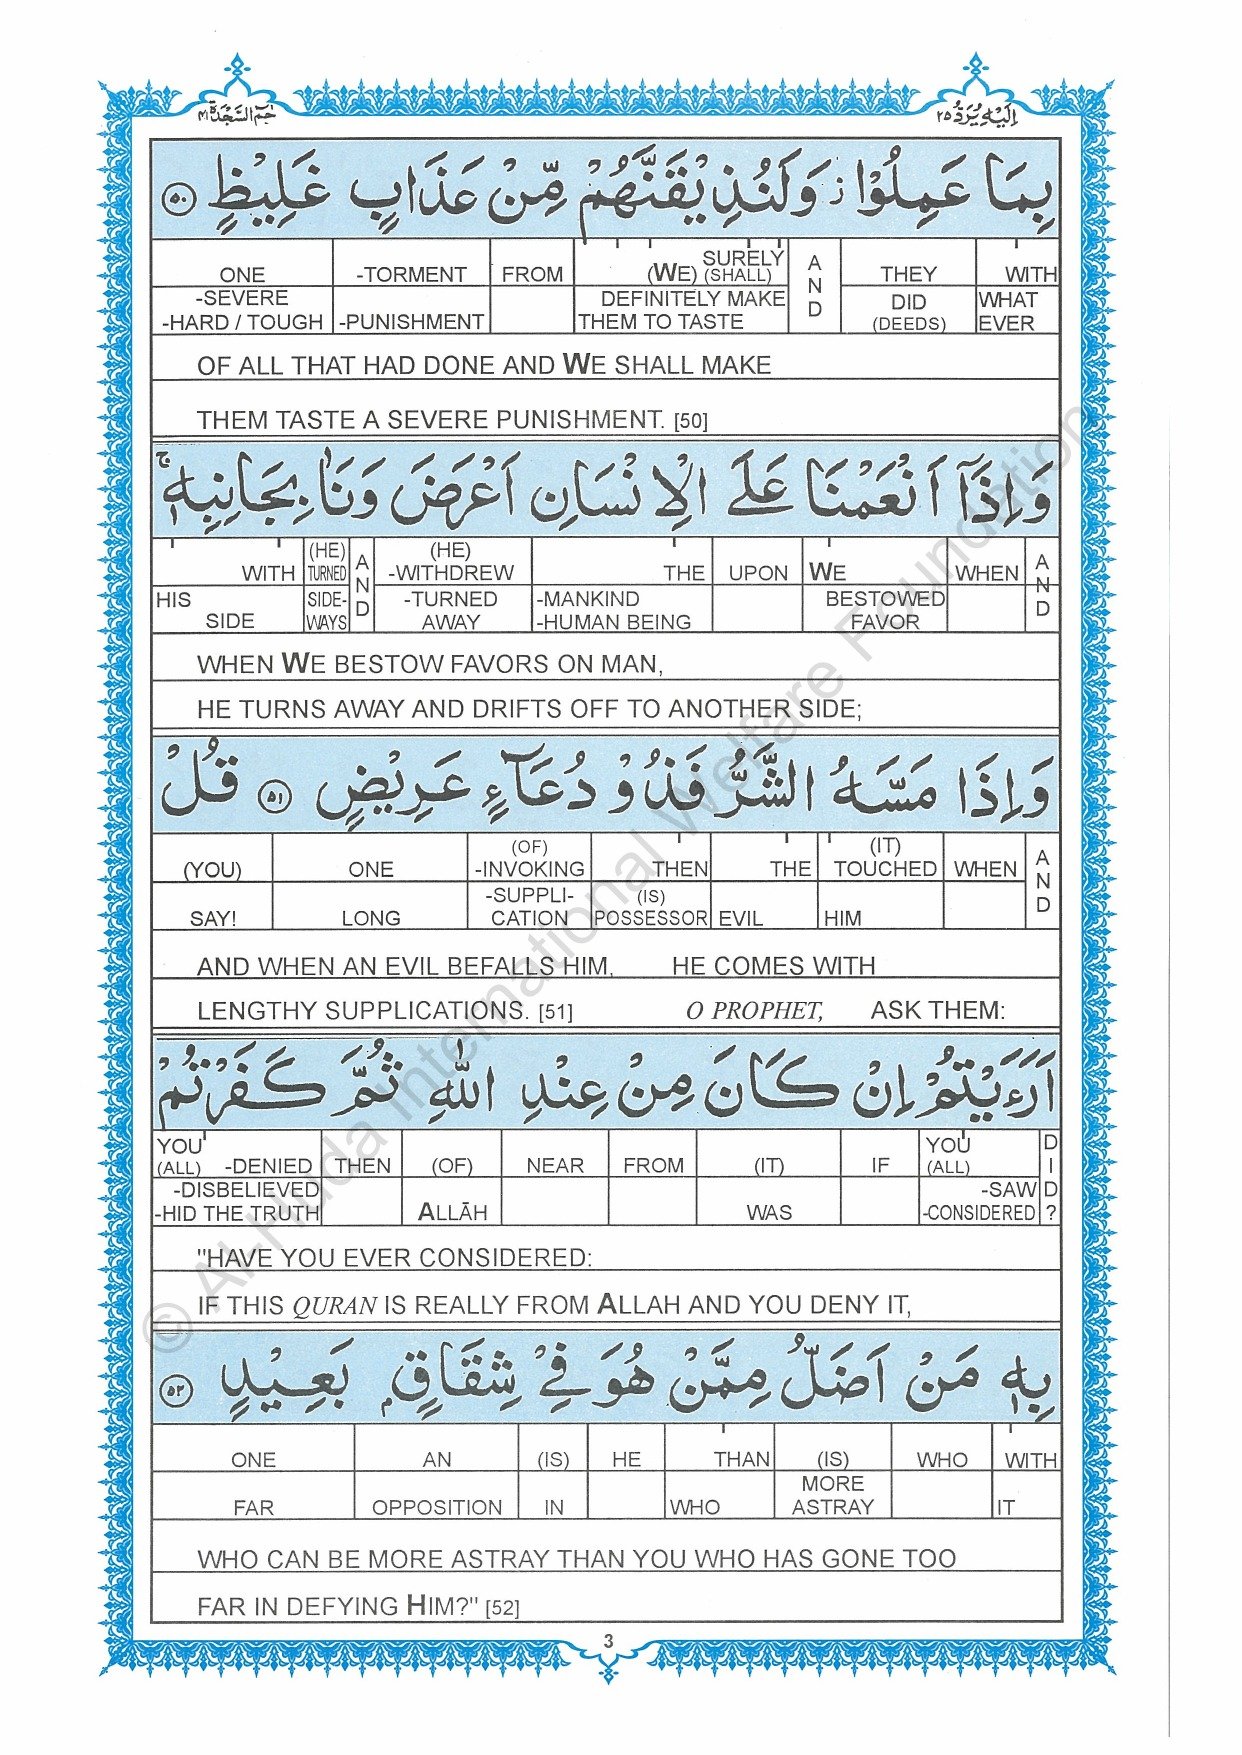 حٰمٓ السَّجْدَة ٤١
اِلَيْهِ يُرَدُّ ٢٥
بِمَا عَمِلُوْا ز وَلَنُذِيْقَنَّهُمْ مِّنْ عَذَابٍ غَلِيْظٍ ٥٠
ONE -TORMENT FROM SURELY (WE) (SHALL) AND THEY WITH
-SEVERE -HARD / TOUGH -PUNISHMENT DEFINITELY MAKE THEM TO TASTE DID (DEEDS) WHAT EVER
OF ALL THAT HAD DONE AND WE SHALL MAKE
THEM TASTE A SEVERE PUNISHMENT. [50]
وَاِذَآ اَنْعَمْنَا عَلَى الْاِنْسَانِ اَعْرَضَ وَنَاٰ بِجَانِبِهٖ ج
WITH (HE) TURNED AND (HE) -WITHDREW THE UPON WE WHEN AND
HIS SIDE SIDE-WAYS -TURNED AWAY -MANKIND -HUMAN BEING BESTOWED FAVOR
WHEN WE BESTOW FAVORS ON MAN,
HE TURNS AWAY AND DRIFTS OFF TO ANOTHER SIDE;
وَاِذَا مَسَّهُ الشَّرُّ فَذُوْ دُعَآءٍ عَرِيْضٍ ٥١ قُلْ
(YOU) ONE (OF) -INVOKING THEN THE (IT) TOUCHED WHEN AND
SAY! LONG -SUPPLI-CATION (IS) POSSESSOR EVIL HIM
AND WHEN AN EVIL BEFALLS HIM, HE COMES WITH
LENGTHY SUPPLICATIONS. [51] O PROPHET, ASK THEM:
اَرَءَيْتُمْ اِنْ كَانَ مِنْ عِنْدِ اللّٰهِ ثُمَّ كَفَرْتُمْ
YOU (ALL) -DENIED THEN (OF) NEAR FROM (IT) IF YOU (ALL) DID?
-DISBELIEVED -HID THE TRUTH ALLĀH WAS -SAW -CONSIDERED
"HAVE YOU EVER CONSIDERED:
IF THIS QURAN IS REALLY FROM ALLAH AND YOU DENY IT,
بِهٖ مَنْ اَضَلُّ مِمَّنْ هُوَ فِيْ شِقَاقٍۭ بَعِيْدٍ ٥٢
ONE AN (IS) HE THAN (IS) WHO WITH
FAR OPPOSITION IN WHO MORE ASTRAY IT
WHO CAN BE MORE ASTRAY THAN YOU WHO HAS GONE TOO
FAR IN DEFYING HIM?" [52]
3
© Al-Huda International Welfare Foundation